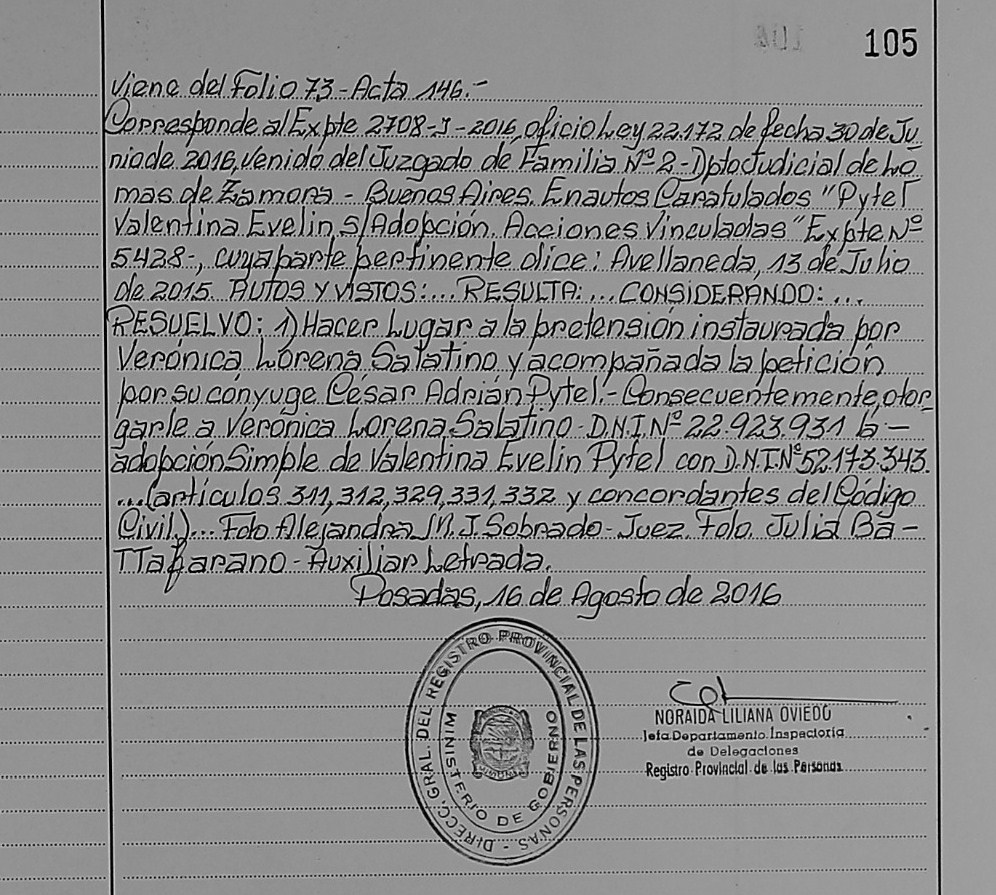 105
Viene del Folio 73-Acta 146.-
Corresponde al Expte 2708-J-2016, oficio Ley 22.172 de fecha 30 de Ju
nio de 2016, Venido del Juzgado de Familia Nº 2-Dpto Judicial de Lo
mas de Zamora - Buenos Aires. En autos Caratulados "Pytel
Valentina Evelin s/Adopción. Acciones Vinculadas" Expte Nº
5428-, cuya parte pertinente dice: Avellaneda, 13 de Julio
de 2015. AUTOS Y VISTOS:... RESULTA:... CONSIDERANDO:...
RESUELVO: 1) Hacer Lugar a la pretensión instaurada por
Verónica Lorena Salatino y acompañada la petición
por su cónyuge César Adrián Pytel.- Consecuentemente, otor
garle a Verónica Lorena Salatino-D.N.I.Nº 22.923.931 la -
adopción Simple de Valentina Evelin Pytel con D.N.I.Nº 52.173.343.
... (artículos 311, 312, 329, 331, 332 y concordantes del Código
Civil)... Fdo Alejandra M. J. Sobrado-Juez. Fdo. Julia Ba-
TTafarano-Auxiliar Letrada.
Posadas, 16 de Agosto de 2016
DIRECC. GRAL. DEL REGISTRO PROVINCIAL DE LAS PERSONAS.-
MINISTERIO DE GOBIERNO
NORAIDA LILIANA OVIEDO
Jefa Departamento Inspectoria
de Delegaciones
Registro Provincial de las Personas